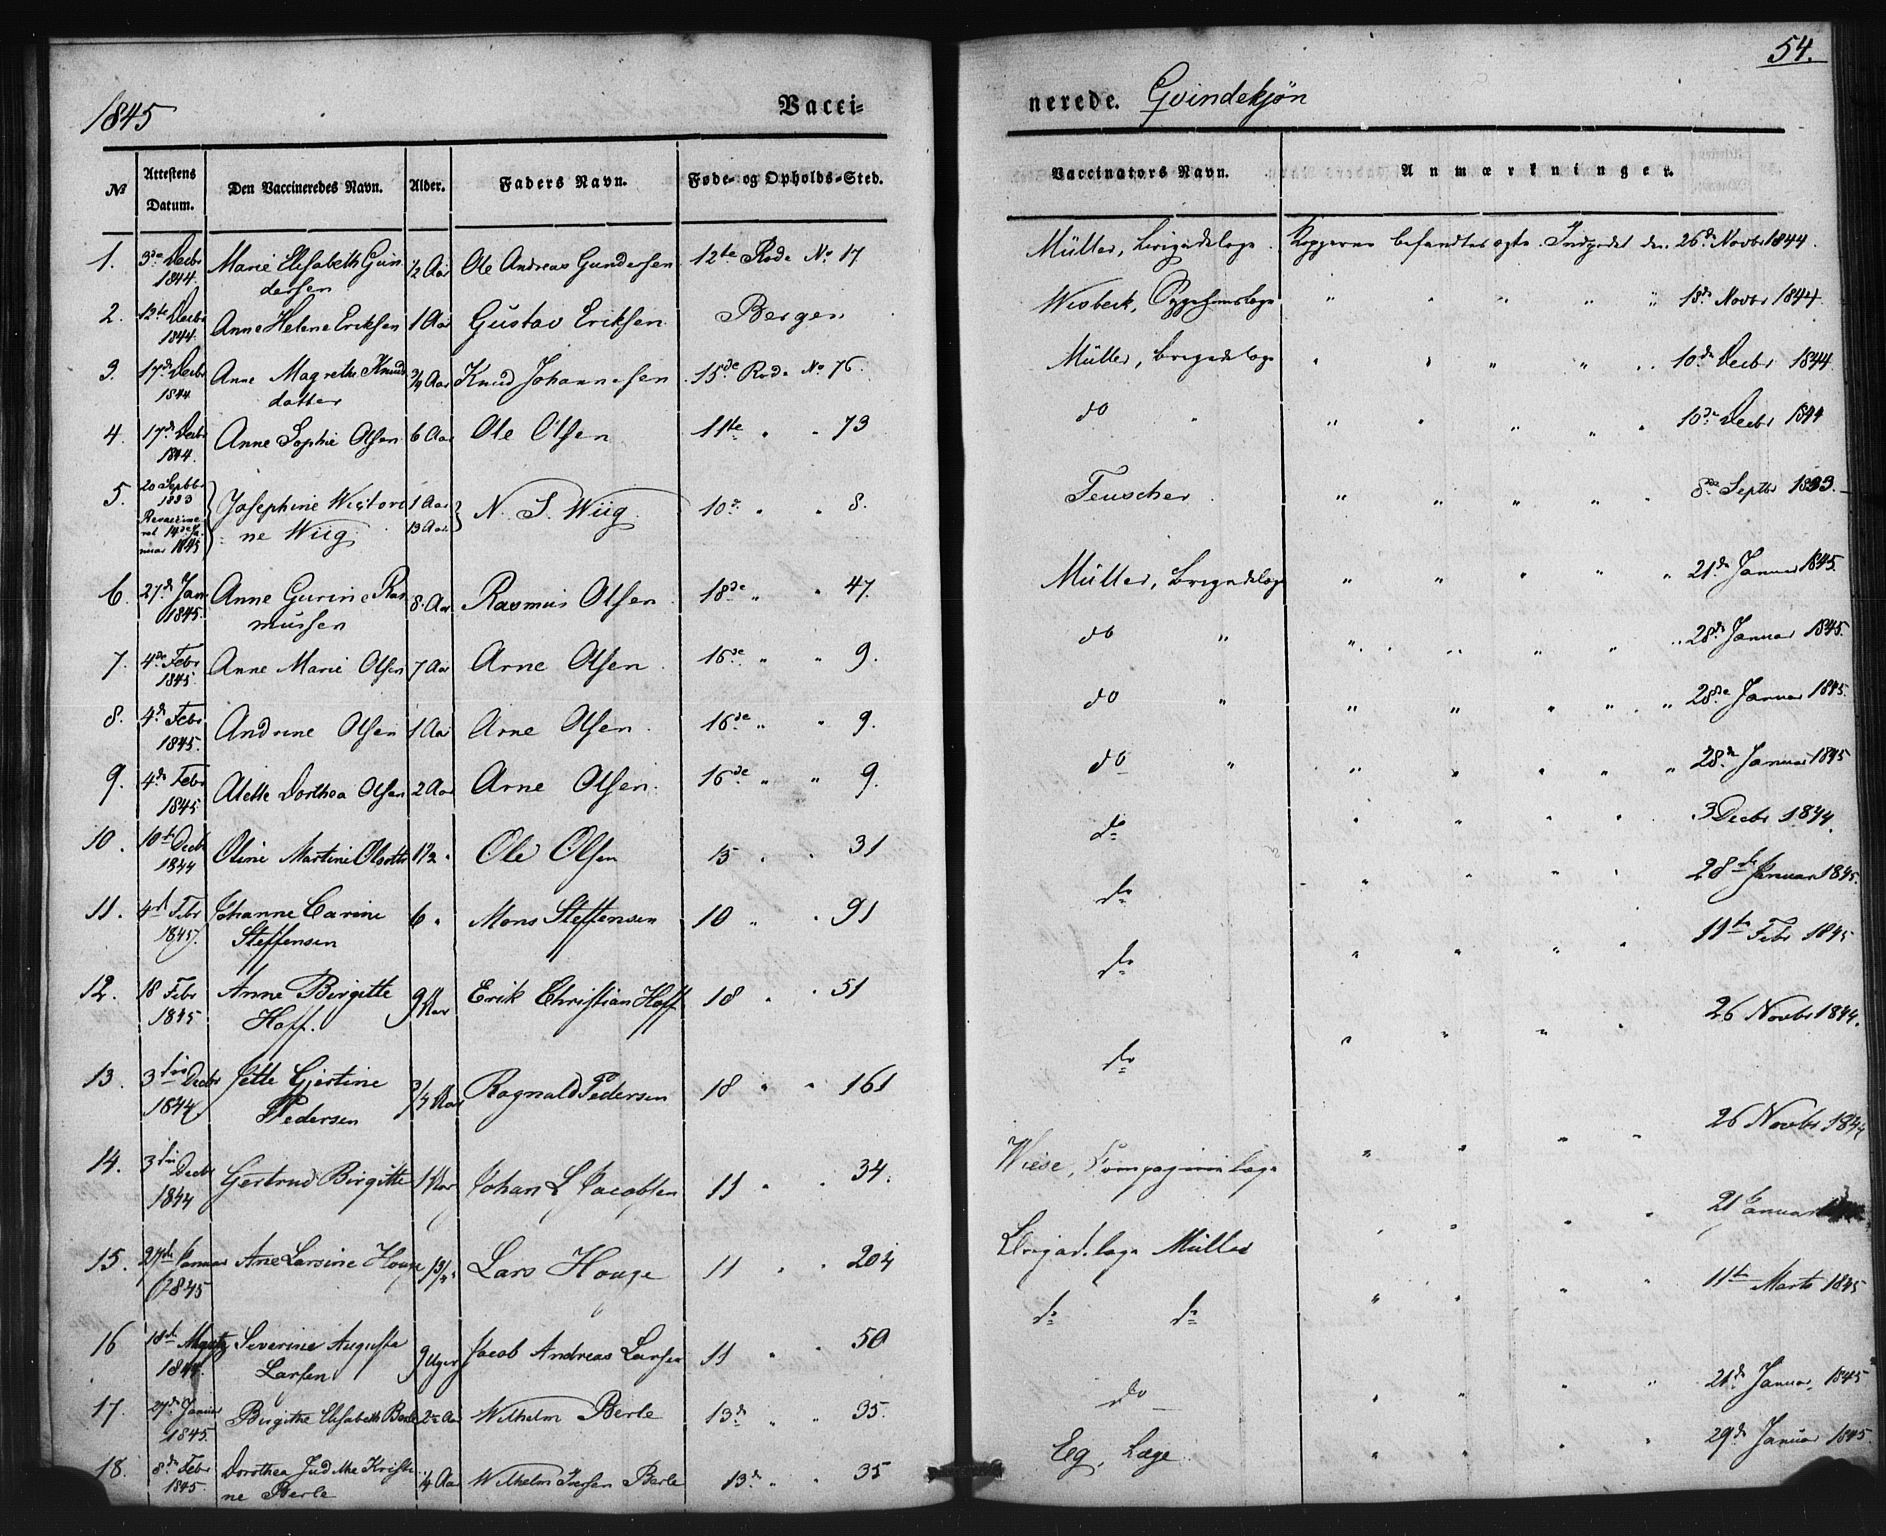 1845
Vacci-
№ Attestens Datum. Den Vaccineredes Navn. Alder. Faders Navn. Føde- og Opholds-Sted.
1. 3de Decbr 1844. Marie Elisabeth Gun
dersen ½ Aar Ole Andreas Gundersen 12te Rode No 17
2. 12te Decbr 1844. Anne Helene Eriksen 1 Aar Gustav Eriksen Bergen
3. 17de Decbr 1844 Anne Magrethe Knuds
datter ¾ Aar Knud Johannesen 15de Rode No 76.
4. 17de Decbr 1844. Anne Sophie Olsen 6 Aar Ole Olsen 11te " " 73
5. 20 Septbr 1833
Revaccine
ret 14de Ja
nuar 1845 Josephine Victori
ne Wiig 1 Aar
13 Aar N. S. Wiig 10de " " 8.
6. 27de Jan 1845. Anne Gurine Ras
mussen 8 Aar Rasmus Olsen 18de " " 47.
7. 4de Febr 1845. Anne Marie Olsen 7 Aar Arne Olsen 16de " " 9.
8. 4de Febr 1845. Andrine Olsen 1 Aar Arne Olsen 16de " " 9.
9. 4de Febr 1845 Alette Dorthea Olsen 2 Aar Arne Olsen 16de " " 9.
10. 10de Decbr 1844 Oline Martine Olsdtr 1½ " Ole Olsen 15 " " 31
11. 4de Febr 1845. Johanne Carine
Steffensen 6 " Mons Steffensen 10 " " 91
12. 18 Febr 1845 Anne Birgitte
Hoff. 9 Aar Erik Christian Hoff 18 " " 51
13. 3die Decbr 1844. Jette Gjertine
Pedersen ¾ Aar Ragnald Pedersen 18 " " 161
14. 3die Decbr 1844 Gertrud Birgitte 1 Aar Johan L Jacobsen 11 " " 34.
15. 27de Januar 1845 Ane Larsine Houge Lars Houge 11 " " 204
16 18de 1845. Severine Augusta
Larsen 9 Uger Jacob Andreas Larsen 11 " " 50
17. 27de Januar 1845. Birgithe Elisabeth Berle 2 Aar Wilhelm Berle 13de " " 35.
18. 8de Febr 1845. Dorothea Judithe Kristi
ne Berle ¼ Aar Wilhelm Iversen Berle 13de " " 35
54.
nerede. Qvindekjøn
Vaccinators Navn. Anmærkninger.
Müller, Brigadelæge. Kopperne befandtes ægte. Indpodet den 26de Novbr 1844.
Wisbeck, " " " " " 18de Novbr 1844.
Müller, Brigadelæge " " " " " 10de Decbr 1844.
do " " " " " " 10de Decbr 1844
Teuscher " " " " 8de Septbr 1833.
Müller, Brigadelæge " " " " " 21de Januar 1845.
do " " " " " " 28de Januar 1845.
do " " " " " " 28de Januar 1845.
do " " " " " " 28de Januar 1845
do " " " " 3 Decbr 1844.
do " " " " 28de Januar 1845.
do " " " " 11te Febr 1845
do " " " " 26 Novbr 1844.
Wiese, Compagnielæge " " " " 26 Novbr 1844
Brigadelæge Müller " " " " 21 Januar
do do " " " " 11te Marts 1845
do " " " " 21de Januar 1845
Eg, Læge " " " " 29de Januar 1845.